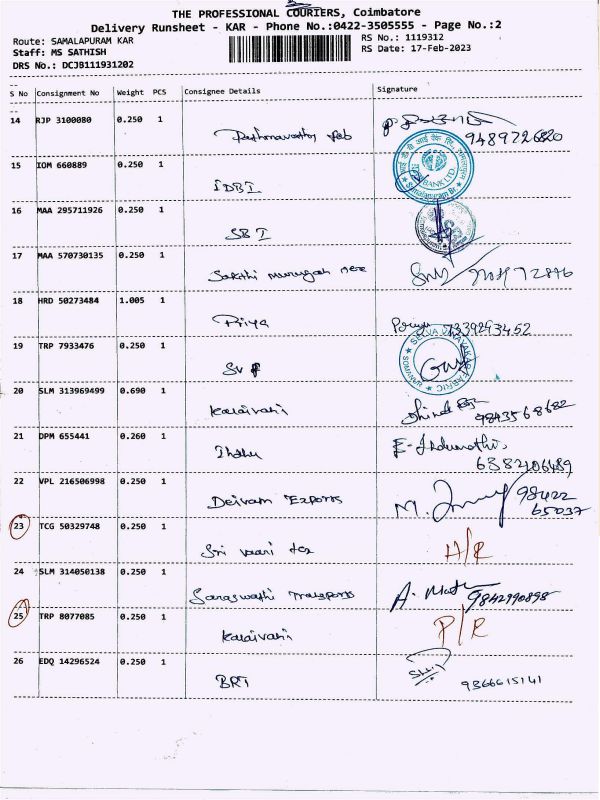 THE PROFESSIONAL COURIERS, Coimbatore
Delivery Runsheet - KAR - Phone No.:0422-3505555 - Page No.:2
Route: SAMALAPURAM KAR
RS No.: 1119312
Staff: MS SATHISH
RS Date: 17-Feb-2023
DRS No.: DCJB111931202
S No Consignment No Weight PCS Consignee Details Signature
14 RJP 3100080 0.250 1
9489726820
15 IOM 660889 0.250 1 IDBI
BANK LTD.
16 MAA 295711926 0.250 1 SBI
17 MAA 570730135 0.250 1 Sakthi murugan
18 HRD 50273484 1.005 1 Priya Priya 7339293452
19 TRP 7933476 0.250 1
SELVA VINAYAKAR FABRIC
20 SLM 313969499 0.690 1 Kalaivani
9843568682
21 DPM 655441 0.260 1 E-Indumathi.
6382106489
22 VPL 216506998 0.250 1 Deivam Exports M. 98422
65037
23 TCG 50329748 0.250 1 Sri vaari tex H/R
24 SLM 314050138 0.250 1 Saraswathi Transports A. 9842990898
25 TRP 8077085 0.250 1 Kalaivani P/R
26 EDQ 14296524 0.250 1 BRT 9366615141